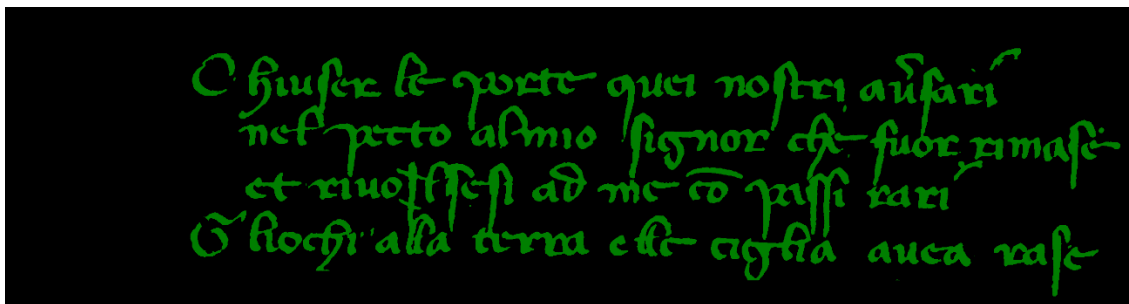 C hiuser le porte quei nostri au̅sari
nel pecto almio signor che fuor rimase
et riuolsesi ad me co̅ passi rari
G liochi alla terra elle ciglia auea rase